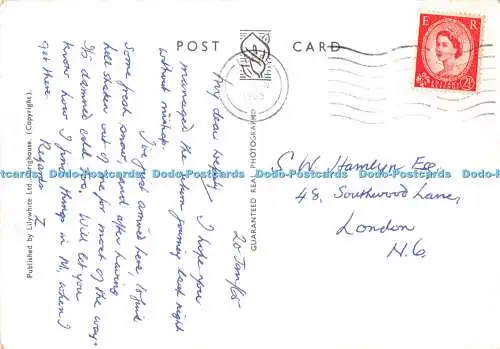 POST CARD
E R
2½D
1965
Published by Lilywhite Ltd., Brighouse. (Copyright).
GUARANTEED REAL PHOTOGRAPH
20 Jan/65
My dear
I hope you
managed the return journey last night
without mishap.
I've just arrived here, to find
some fresh snow, and after having
hell shaken out of me for most of the way.
It's damned cold too. Will let you
know how I find things in M, when I
get there.
Regards
I
S. W. Hamlyn Esq.
48, Southwood Lane,
London
N.6.
Dodo-Postcards Dodo-Postcards Dodo-Postcards Dodo-Postcards